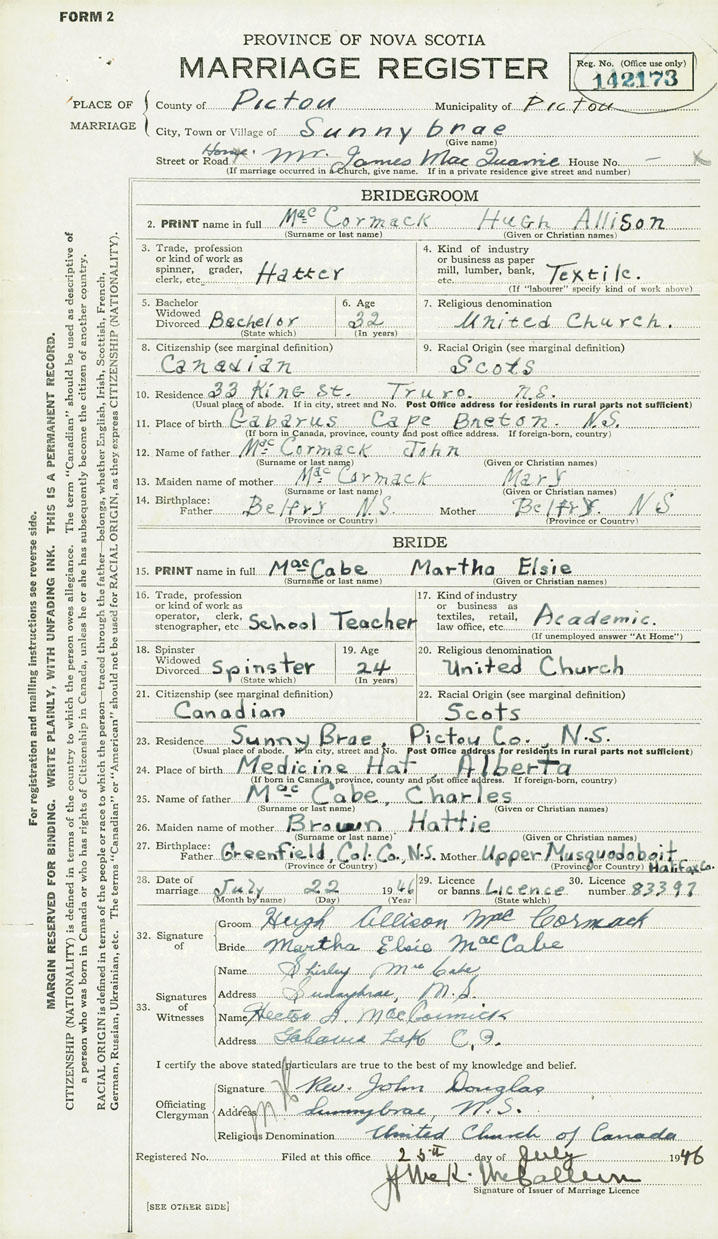 FORM 2
PROVINCE OF NOVA SCOTIA
MARRIAGE REGISTER
Reg. No. (Office use only)
142173
PLACE OF MARRIAGE
County of Pictou Municipality of Pictou
City, Town or Village of Sunnybrae
(Give name)
Street or Road House Mr. James MacQuarrie House No. -
(If marriage occurred in a Church, give name. If in a private residence give street and number)
BRIDEGROOM
2. PRINT name in full MacCormack Hugh Allison
(Surname or last name) (Given or Christian names)
3. Trade, profession or kind of work as spinner, grader, clerk, etc. Hatter
4. Kind of industry or business as paper mill, lumber, bank, etc. Textile.
(If "labourer" specify kind of work above)
5. Bachelor Widowed Divorced Bachelor
(State which)
6. Age 32
(In years)
7. Religious denomination
United Church.
8. Citizenship (see marginal definition)
Canadian
9. Racial Origin (see marginal definition)
Scots
10. Residence 33 King St. Truro. N.S.
(Usual place of abode. If in city, street and No. Post Office address for residents in rural parts not sufficient)
11. Place of birth Gabarus Cape Breton. N.S.
(If born in Canada, province, county and post office address. If foreign-born, country)
12. Name of father MacCormack John
(Surname or last name) (Given or Christian names)
13. Maiden name of mother MacCormack Mary
(Surname or last name) (Given or Christian names)
14. Birthplace: Father Belfry N.S. Mother Belfry. N S
(Province or Country) (Province or Country)
BRIDE
15. PRINT name in full MacCabe Martha Elsie
(Surname or last name) (Given or Christian names)
16. Trade, profession or kind of work as operator, clerk, stenographer, etc School Teacher
17. Kind of industry or business as textiles, retail, law office, etc. Academic.
(If unemployed answer "At Home")
18. Spinster Widowed Divorced Spinster
(State which)
19. Age 24
(In years)
20. Religious denomination
United Church
21. Citizenship (see marginal definition)
Canadian
22. Racial Origin (see marginal definition)
Scots
23. Residence Sunny Brae, Pictou Co., N.S.
(Usual place of abode. If in city, street and No. Post Office address for residents in rural parts not sufficient)
24. Place of birth Medicine Hat Alberta
(If born in Canada, province, county and post office address. If foreign-born, country)
25. Name of father MacCabe, Charles
(Surname or last name) (Given or Christian names)
26. Maiden name of mother Brown Hattie
(Surname or last name) (Given or Christian names)
27. Birthplace: Father Greenfield, Col. Co., N.S. Mother Upper Musquodoboit Halifax Co.
(Province or Country) (Province or Country)
28. Date of marriage July 22 1946
(Month by name) (Day) (Year)
29. Licence or banns Licence
(State which)
30. Licence number 83397
32. Signature of
Groom Hugh Allison MacCormack
Bride Martha Elsie MacCabe
33. Signatures of Witnesses
Name Shirley MacCabe
Address Sunnybrae, N.S.
Name Hector MacCormick
Address Gabarus Lake C.B.
I certify the above stated particulars are true to the best of my knowledge and belief.
Officiating Clergyman
Signature Rev. John Douglas
Address Sunnybrae, N.S.
Religious Denomination United Church of Canada
Registered No. Filed at this office 25th day of July 1946
Signature of Issuer of Marriage Licence
[SEE OTHER SIDE]
For registration and mailing instructions see reverse side.
MARGIN RESERVED FOR BINDING. WRITE PLAINLY, WITH UNFADING INK. THIS IS A PERMANENT RECORD.
CITIZENSHIP (NATIONALITY) is defined in terms of the country to which the person owes allegiance. The term "Canadian" should be used as descriptive of
a person who was born in Canada or who has rights of Citizenship in Canada, unless he or she has subsequently become the citizen of another country.
RACIAL ORIGIN is defined in terms of the people or race to which the person—traced through the father—belongs, whether English, Irish, Scottish, French,
German, Russian, Ukrainian, etc. The terms "Canadian" or "American" should not be used for RACIAL ORIGIN, as they express CITIZENSHIP (NATIONALITY).